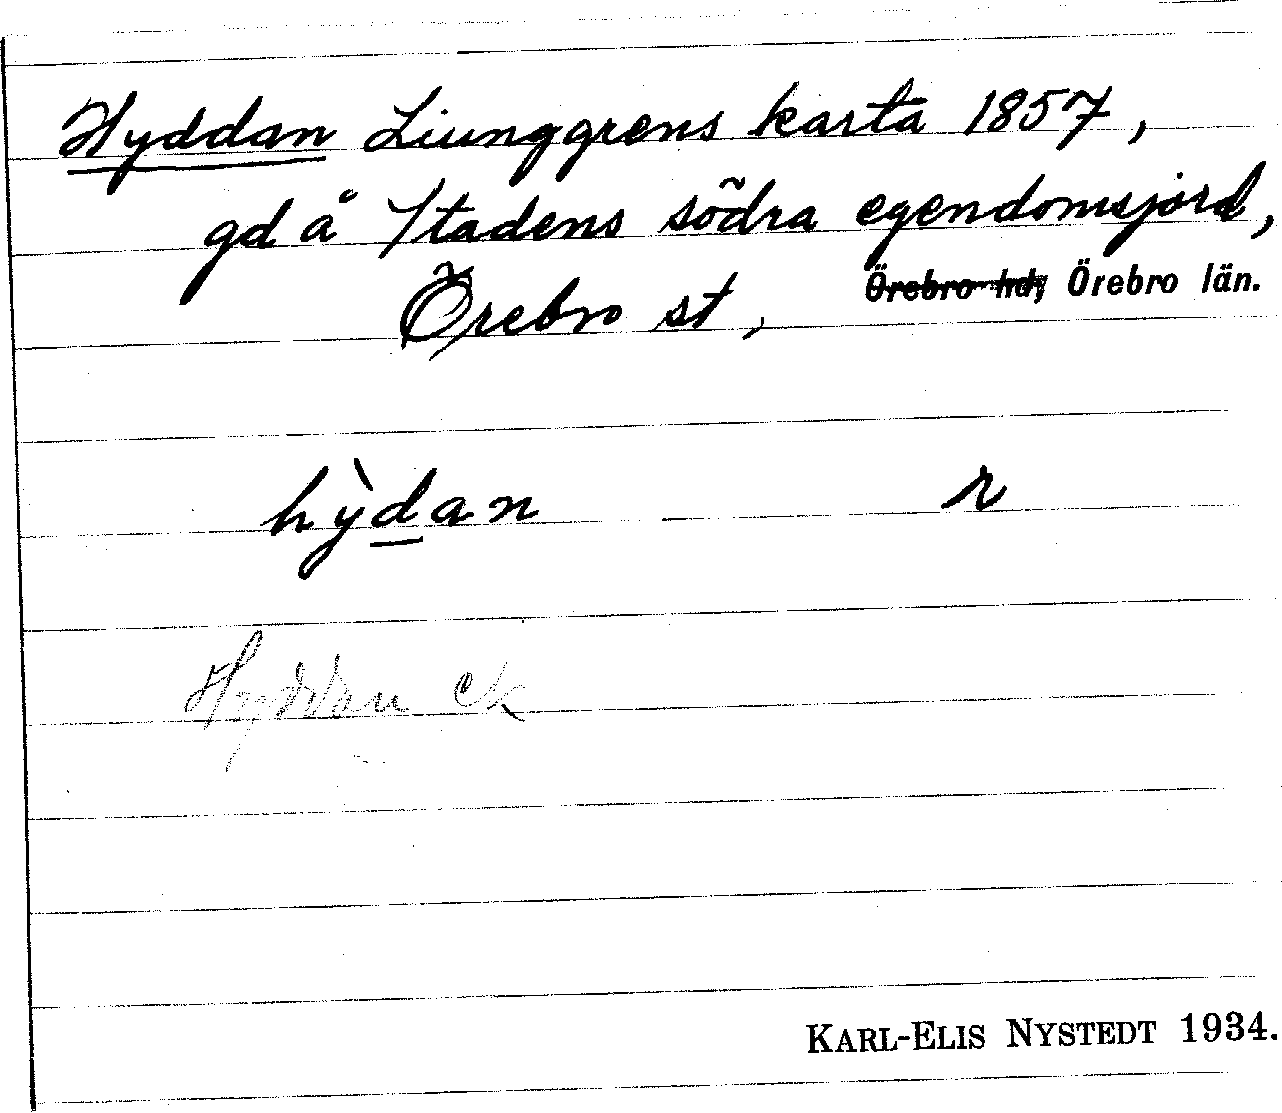 Hyddan Liunggrens karta 1857,
gd å Stadens södra egendomsjord,
Örebro st, Örebro hd, Örebro län.
hỳdan r
Hyddan ek
KARL-ELIS NYSTEDT 1934.